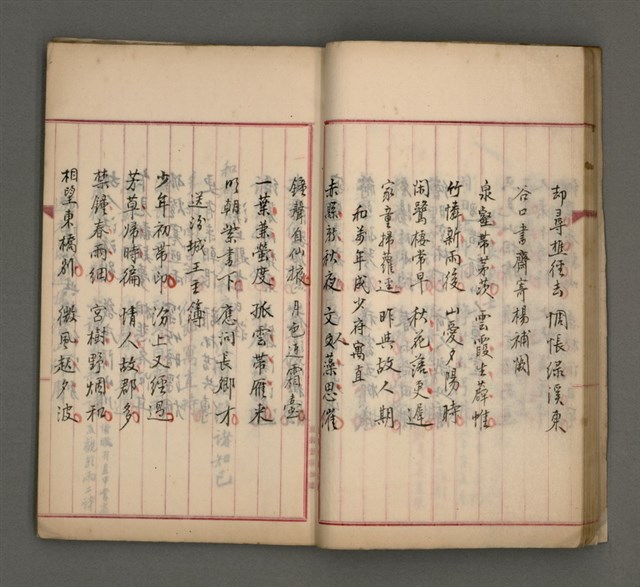 却尋樵徑去 惆悵綠溪東
谷口書齋寄楊補闕
泉壑帶茅茨 雲霞生薜帷
竹憐新雨後 山愛夕陽時
閑鷺棲常早 秋花落更遲
家童掃蘿逕 昨與故人期
和萬年成少府寓直
赤縣新秋夜 文人藻思催
鐘聲自仙掖 月色近霜臺
一葉兼螢度 孤雲帶雁來
明朝紫書下 應問長卿才
送汾城王主簿
少年初帶印 汾上又經過
芳草歸時徧 情人故郡多
禁鐘春雨細 宮樹野烟和
相望東橋別 微風起夕波